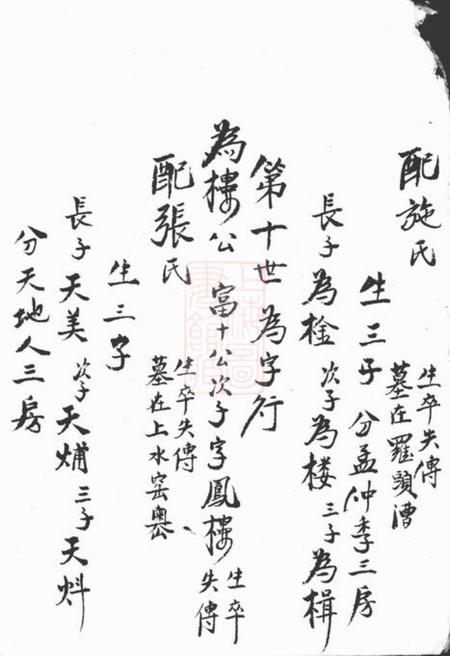 配施氏
生卒失傳
墓在羅頭漕
生三子 分孟仲季三房
長子為棆 次子為楼 三子為楫
第十世為字行
為樓公 富十公次子字鳳樓 生卒失傳
配張氏 生卒失傳
墓在上水窑奧
生三子
長子天美 次子天煵 三子天炓
分天地人三房